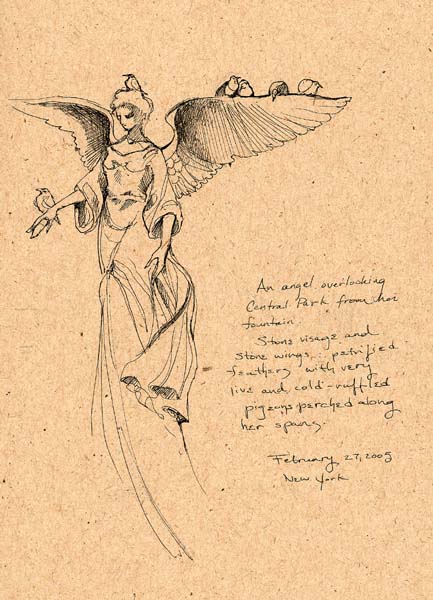 An angel overlooking
Central Park from her
fountain.
Stone visage and
stone wings... petrified
feathers with very
live and cold-ruffled
pigeons perched along
her spans.
February 27, 2005
New York